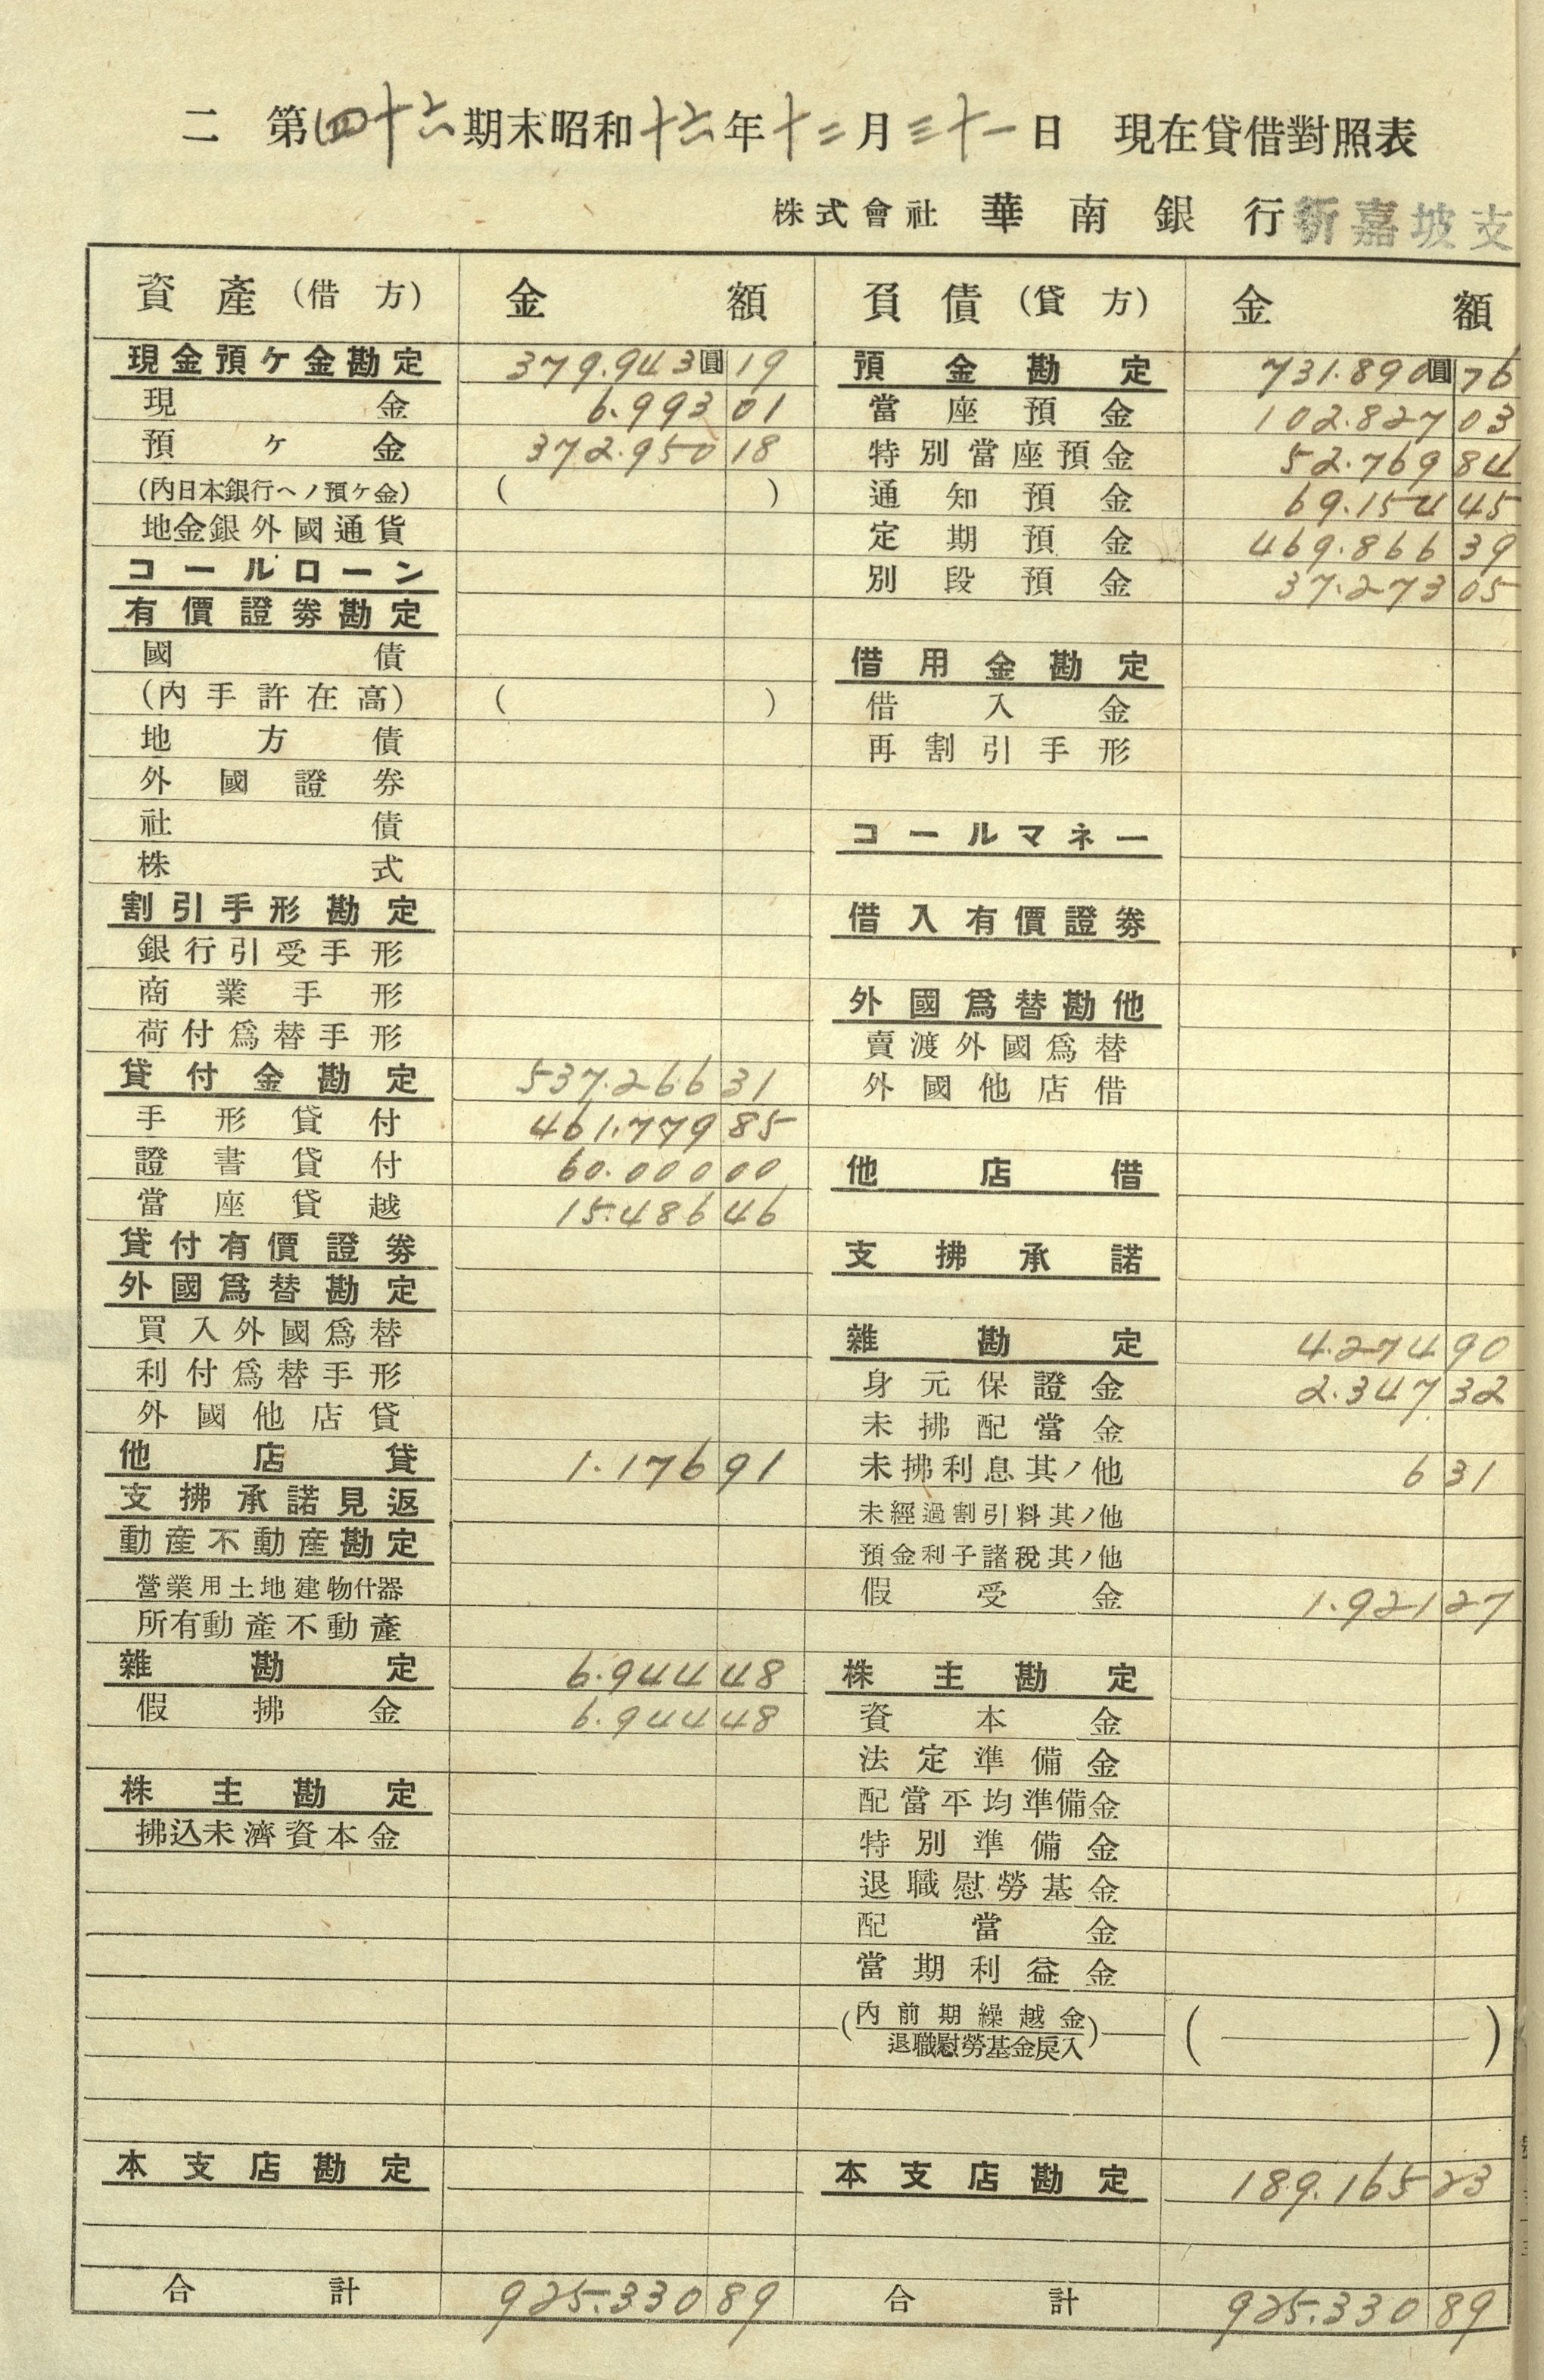 二 第四十六期末昭和十六年十二月三十一日 現在貸借對照表
株式會社 華南銀行新嘉坡支
資產(借方) 金額 負債(貸方) 金額
現金預ケ金勘定 379.943圓19 預金勘定 731.890圓76
現金 6.993 01 當座預金 102.827 03
預ケ金 372.950 18 特別當座預金 52.769 84
(內日本銀行ヘノ預ケ金) ( ) 通知預金 69.154 45
地金銀外國通貨 定期預金 469.866 39
コールローン 別段預金 37.273 05
有價證券勘定
國債 借用金勘定
(內手許在高) ( ) 借入金
地方債 再割引手形
外國證券
社債 コールマネー
株式
割引手形勘定 借入有價證券
銀行引受手形
商業手形 外國爲替勘他
荷付爲替手形 賣渡外國爲替
貸付金勘定 537.266 31 外國他店借
手形貸付 461.779 85
證書貸付 60.000 00 他店借
當座貸越 15.486 46
貸付有價證券 支拂承諾
外國爲替勘定
買入外國爲替 雜勘定 4.274 90
利付爲替手形 身元保證金 2.347 32
外國他店貸 未拂配當金
他店貸 1.176 91 未拂利息其ノ他 6 31
支拂承諾見返 未經過割引料其ノ他
動產不動產勘定 預金利子諸稅其ノ他
營業用土地建物什器 假受金 1.921 27
所有動產不動產
雜勘定 6.944 48 株主勘定
假拂金 6.944 48 資本金
法定準備金
株主勘定 配當平均準備金
拂込未濟資本金 特別準備金
退職慰勞基金
配當金
當期利益金
(內前期繰越金 ( )
退職慰勞基金戾入)
本支店勘定 本支店勘定 189.165 23
合計 925.330 89 合計 925.330 89